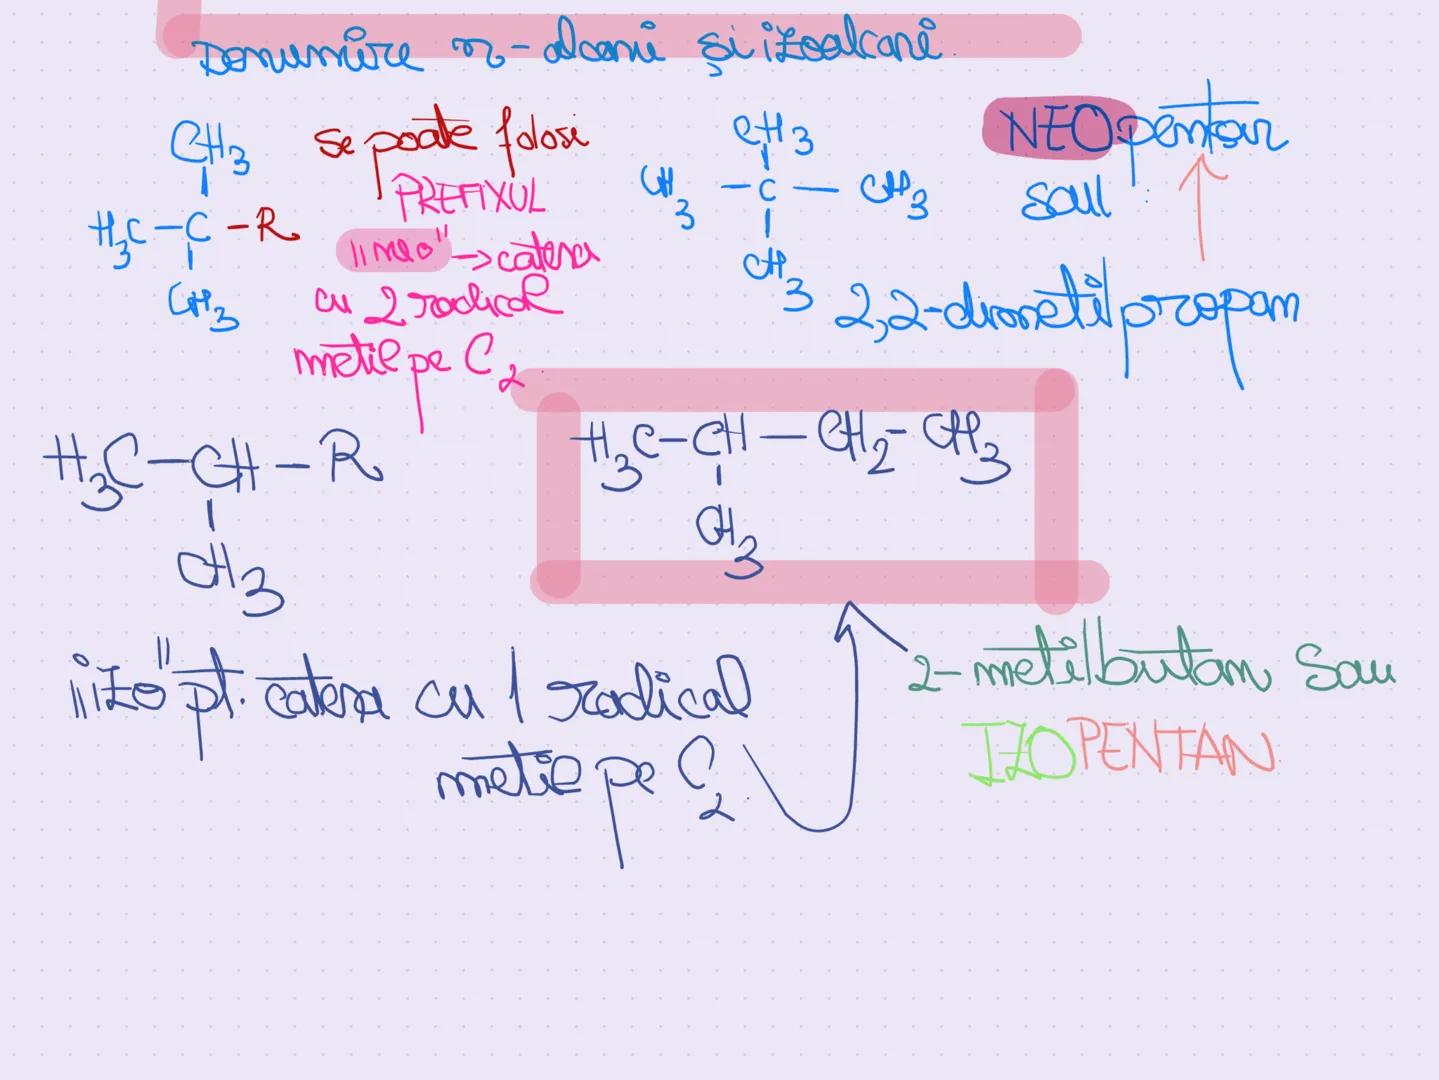 Denumire n-alcani și izoalcani
CH3
H3C-C-R
CH3
se poate folosi
PREFIXUL
"neo" → catena
cu 2 radical
metil pe C2
CH3
CH3 - C - CH3
CH3
NEOpentan
sau
2,2-dimetilpropan
H3C-CH-R
CH3
H3C-CH-CH2-CH3
CH3
"izo" pt. catena cu 1 radical
metil pe C2
2-metilbutan sau
IZOPENTAN